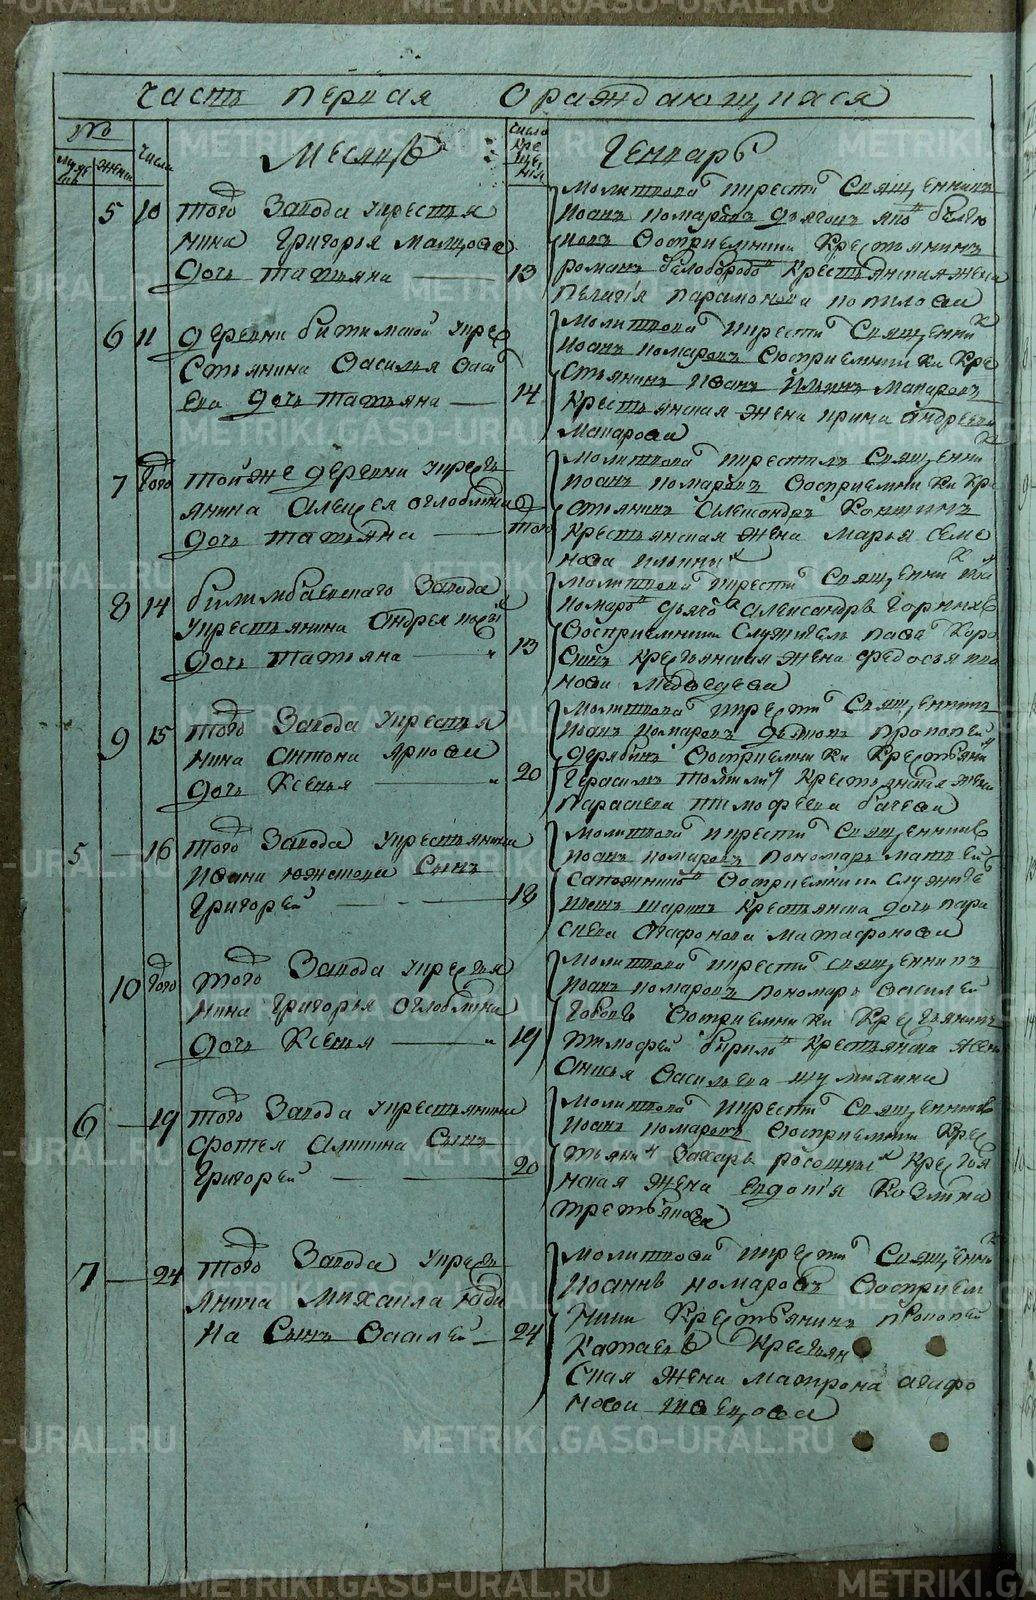 Часть первая о раждающихся
№
муже
женс
числа
Месяцъ
число
кре
щен
ія
Генварь
5 10 того Завода крестья
нина Григорья
дочь татьяна 13
молитвова и крести Священникъ
Иоанъ Комаровъ дьяконъ
Восприемники Крестьянинъ
романъ белобородо Крестьянская жена
Пелагія Парамонова
6 11 деревни битимской крес
стьянина Василья Васи
ева дочь татьяна 14
молитвова и крести Священни
Иоанъ Комаровъ Восприемники Кре
стьянинъ Иванъ Ильинъ Макаровъ
Крестьянская жена ирина андреева
Макарова
7 того тойже деревни кресть
янина Алексея оглоблина
дочь татьяна того
молитвова и крестилъ Священни
Иоанъ Комаровъ Восприемники Кре
стьянинъ Александръ
Крестьянская жена Марья семе
нова
8 14 билимбаевскаго Завода
крестьянина Андрея
дочь татьяна 13
молитвова и крести Священни
Комаро дьячо Александръ Горныхъ
Восприемники Служитель
Крестьянская жена федосья
нова Медведева
9 15 того Завода крестья
нина антона
дочь Ксенья 20
молитвова и крести Священникъ
Иоанъ Комаровъ дьяконъ Прокопей
дерябинъ Восприемники Крестьяни
Герасимъ Крестьянская жена
Параскева тимофеева
5 16 того Завода крестьянина
Ивана Сынъ
Григорей 18
молитвова и крести Священникъ
Иоанъ Комаровъ Пономарь матвей
Сапожнико Восприемники служите
Крестьянска дочь пара
скева Агафонова Матафонова
10 того того Завода крестья
нина Григорья оглоблина
дочь Ксенья 19
молитвова и крести священникъ
Иоанъ Комаровъ Пономарь Василей
Восприемники Крестьянинъ
тимофей Крестьянска жена
Анисья Васильева шумихина
6 19 того Завода крестьянина
фотея Сынъ
Григорей 20
молитвова и крести Священникъ
Иоанъ Комаровъ Восприемники Крес
тьяни Захаръ Крестья
нская жена Евдокія Козмина
третьякова
7 24 того Завода кресть
янина Михаила юди
на Сынъ Василей 24
молитвова и крести Священни
Иоаннъ Комаровъ Восприем
ники Крестьянинъ Прокопей
Катаевъ Крестьян
ская жена матрона агафо
нова